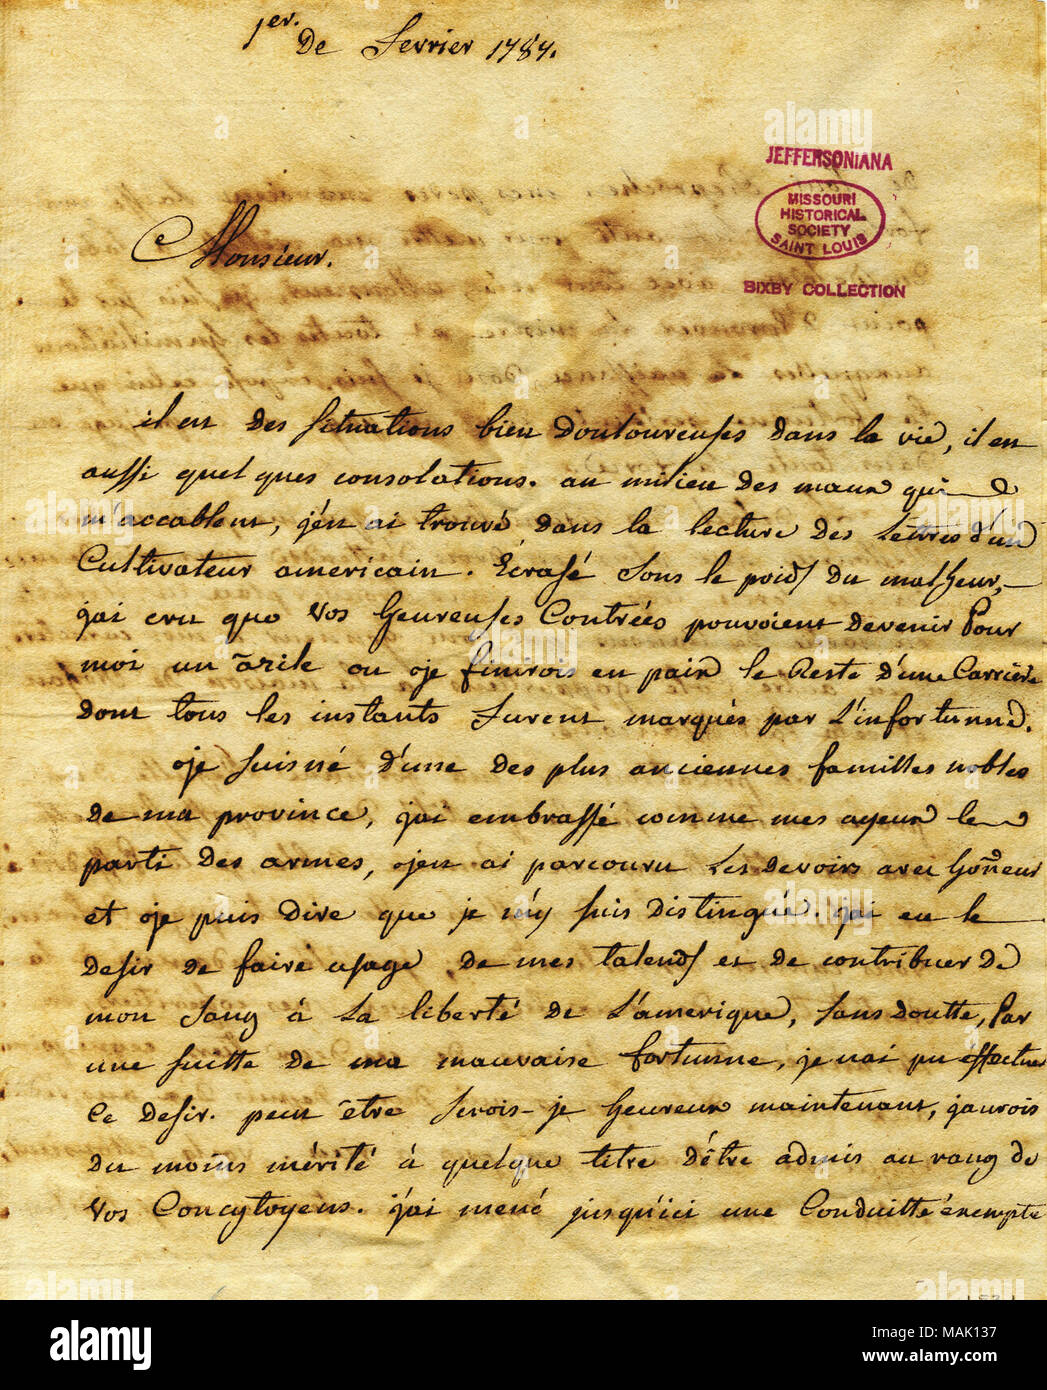 1er.
De fevrier 1787.
JEFFERSONIANA
MISSOURI
HISTORICAL
SOCIETY
SAINT LOUIS
BIXBY COLLECTION
Monsieur.
il en des situations bien douloureuses dans la vie, il en
aussi quelques consolations. au milieu des maux qui
m'accablent, j'en ai trouvé dans la lecture des Lettres d'un
Cultivateur americain. Ecrasé sous le poids du malheur,
j'ai cru que vos heureuses Contrées pouvoient devenir Pour
moi un azile ou je finirois en paix le Reste d'une Carriere
dont tous les instants furent marqués par L'infortunne.
je suis né d'une des plus anciennes familles nobles
de ma province, j'ai embrassé comme mes ayeux le
parti des armes, j'en ai parcouru Les devoirs avec honneur
et je puis dire que je m'y suis distingué. j'ai eu le
desir de faire usage de mes talends et de contribuer de
mon sang à La liberté de L'amerique, sans doutte, Par
une suitte de ma mauvaise fortunne, je n'ai pu effectuer
Ce desir. peut être serois-je heureux maintenant, j'aurois
du moins mérité à quelque titre d'être admis au rang de
vos Concytoyens. j'ai mené jusqu'ici une Conduitte exempte
alamy
Image ID: MAK137
www.alamy.com